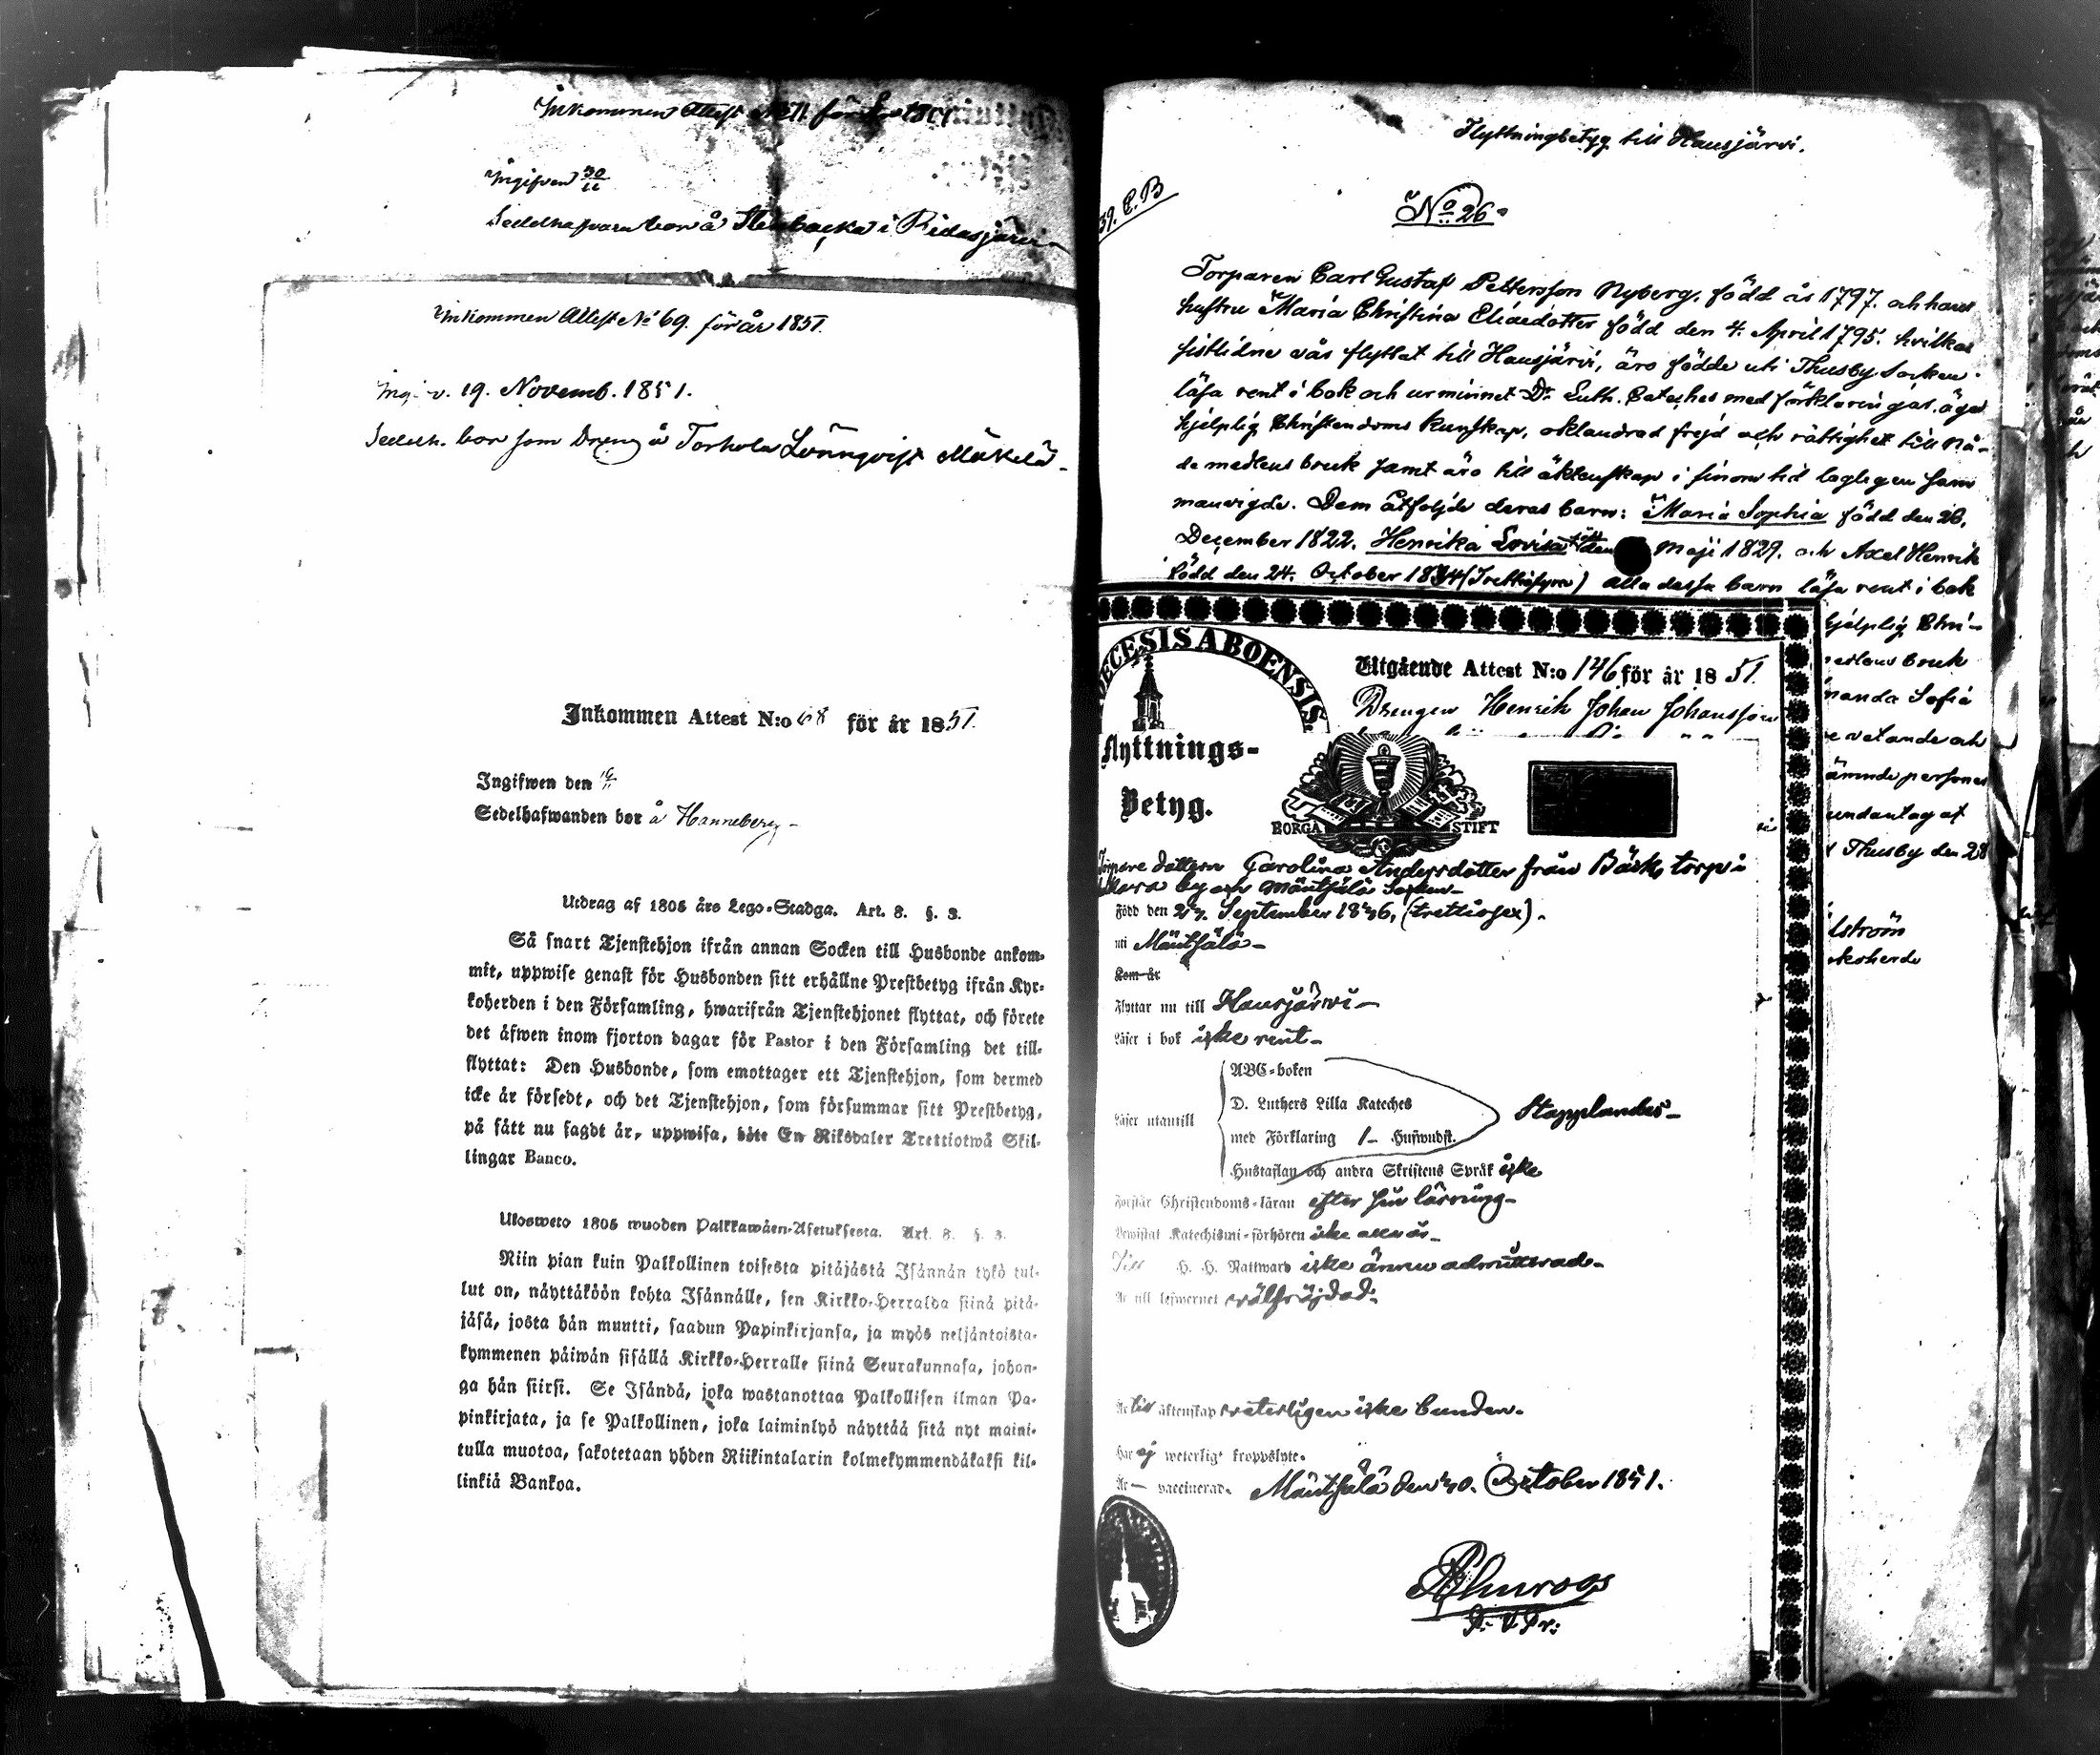 Inkommen Attest No 71. för år 1851
Ingifven 30/11
Sedelhafvaren bor å Stenbacka i Ridasjärvi
Inkommen Attest No 69. för år 1851.
19. Novemb. 1851.
Sedelh. bor som Dreng å Torhola Lönnqvist Mäkelä
Inkommen Attest N:o 68 för år 1851.
Ingifwen den
Sedelhafwanden bor å Hanneberg
Utdrag af 1805 års Lego-Stadga. Art. 8. §. 3.
Så snart Tjenstehjon ifrån annan Socken till Husbonde ankom-
mit, uppwise genast för Husbonden sitt erhållne Prestbetyg ifrån Kyr-
koherden i den Församling, hwarifrån Tjenstehjonet flyttat, och förete
det äfwen inom fjorton dagar för Pastor i den Församling det till-
flyttat: Den Husbonde, som emottager ett Tjenstehjon, som dermed
icke är försedt, och det Tjenstehjon, som försummar sitt Prestbetyg,
på sätt nu sagdt är, uppwisa, böte En Riksdaler Trettiotwå Skil-
lingar Banco.
Ulosweto 1805 wuoden Palkkawäen-Asetuksesta. Art. 8. §. 3.
Niin pian kuin Palkollinen toisesta pitäjästä Isännän tykö tul-
lut on, näyttäköön kohta Isännälle, sen Kirkko-Herralda siinä pitä-
jäsä, josta hän muutti, saadun Papinkirjansa, ja myös neljäntoista-
kymmenen päiwän sisällä Kirkko-Herralle siinä Seurakunnasa, johon-
ga hän siirsi. Se Isändä, joka wastanottaa Palkollisen ilman Pa-
pinkirjata, ja se Palkollinen, joka laiminlyö näyttää sitä nyt maini-
tulla muotoa, sakotetaan yhden Riikintalarin kolmekymmendäkaksi kil-
linkiä Bankoa.
Flyttningbetyg till Hausjärvi.
39. C. B
No 26.
Torparen Carl Gustaf Pettersson Nyberg, född år 1797. och hans
hustru Maria Christina Eliaedotter född den 4. April 1795. hvilka
sistlidne vår flyttat till Hausjärvi, äro födde uti Thusby Socken.
läsa rent i bok och ur minnet Dr. Luth. Cateches med förklaringar, äga
hjelplig Christendoms kunskap, oklandrad frejd och rättighet till Nå-
demedlens bruk samt äro till äktenskap i sinom tid lagligen sam
manvigde. Dem åtfölja deras barn: Maria Sophia född den 26.
December 1822. Henrika Lovisa född den Maji 1829. och Axel Henrik
född den 24. October 1834 (Trettiofyra) alla dessa barn läsa rent i bok
hjelplig Chri-
medlens bruk
manda Sofia
vetande och
nämnde personer
undantag af
Thusby den 28
DIOECESIS ABOENSIS.
Utgående Attest N:o 146 för år 1851.
Drengen Henrik Johan Johansson
Flyttnings-
Betyg.
BORGÅ STIFT
Torpare dottern Carolina Andersdotter från Bäcks torp i
byen Mäntsälä Socken
Född den 27. September 1836, (trettiosex).
uti Mäntsälä
Kom år
Flyttar nu till Hausjärwi
Läser i bok icke rent
Läser utantill
ABC-boken
D. Luthers Lilla Kateches
med Förklaring Hufwudst.
Stapplandes
Hustaflan och andra Skriftens Språk icke
Förstår Christendoms-läran efter sin lärning
Bewistat Katechismi-förhören icke alla år
Till H. H. Nattward icke ännu admitterad
Är till lefwernet wälfrejdad.
Är till äktenskap weterligen icke bunden.
Har ej weterligt kroppslyte.
Är vaccinerad. Mäntsälä den 30. October 1851.